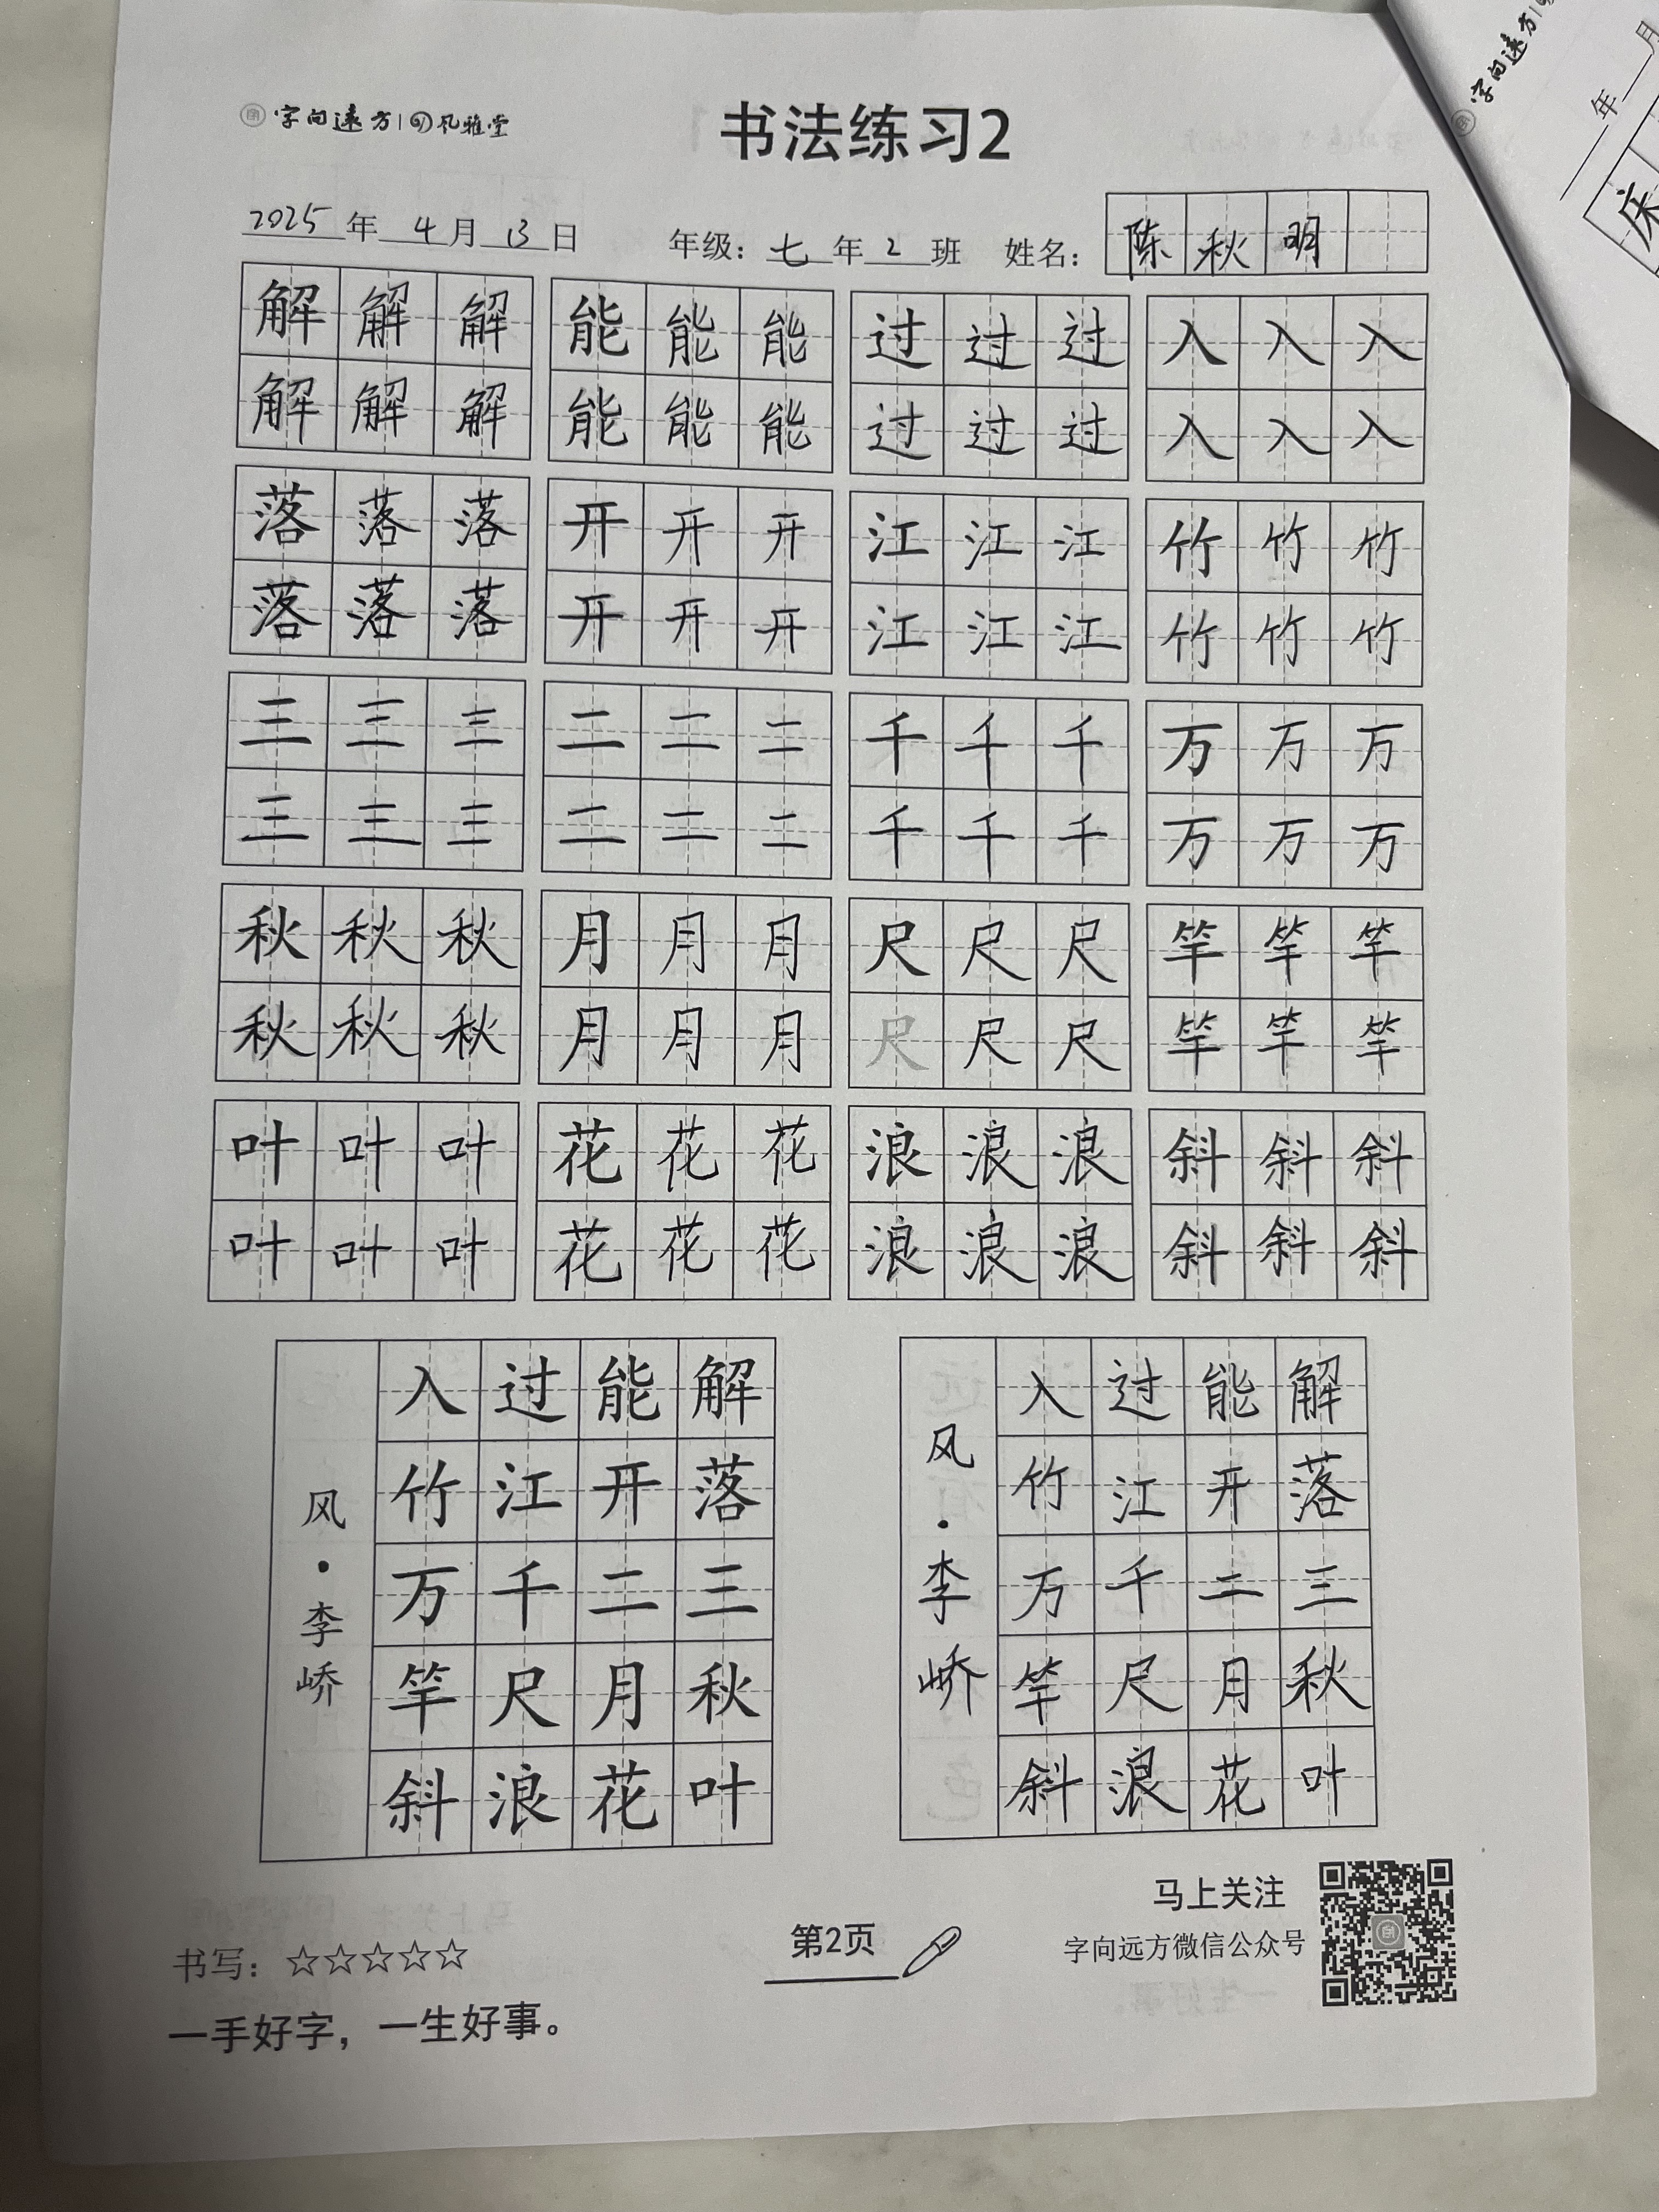 字向远方 风雅堂
书法练习2
2025年 4月 13日 年级：七年2班 姓名：陈秋明
解解解 能能能 过过过 入入入
解解解 能能能 过过过 入入入
落落落 开开开 江江江 竹竹竹
落落落 开开开 江江江 竹竹竹
三三三 二二二 千千千 万万万
三三三 二二二 千千千 万万万
秋秋秋 月月月 尺尺尺 竿竿竿
秋秋秋 月月月 尺尺尺 竿竿竿
叶叶叶 花花花 浪浪浪 斜斜斜
叶叶叶 花花花 浪浪浪 斜斜斜
解落三秋叶
能开二月花
过江千尺浪
入竹万竿斜
风·李峤
解落三秋叶
能开二月花
过江千尺浪
入竹万竿斜
风·李峤
书写：☆☆☆☆☆
一手好字，一生好事。
第2页
马上关注
字向远方微信公众号
字向远方
年 月
床